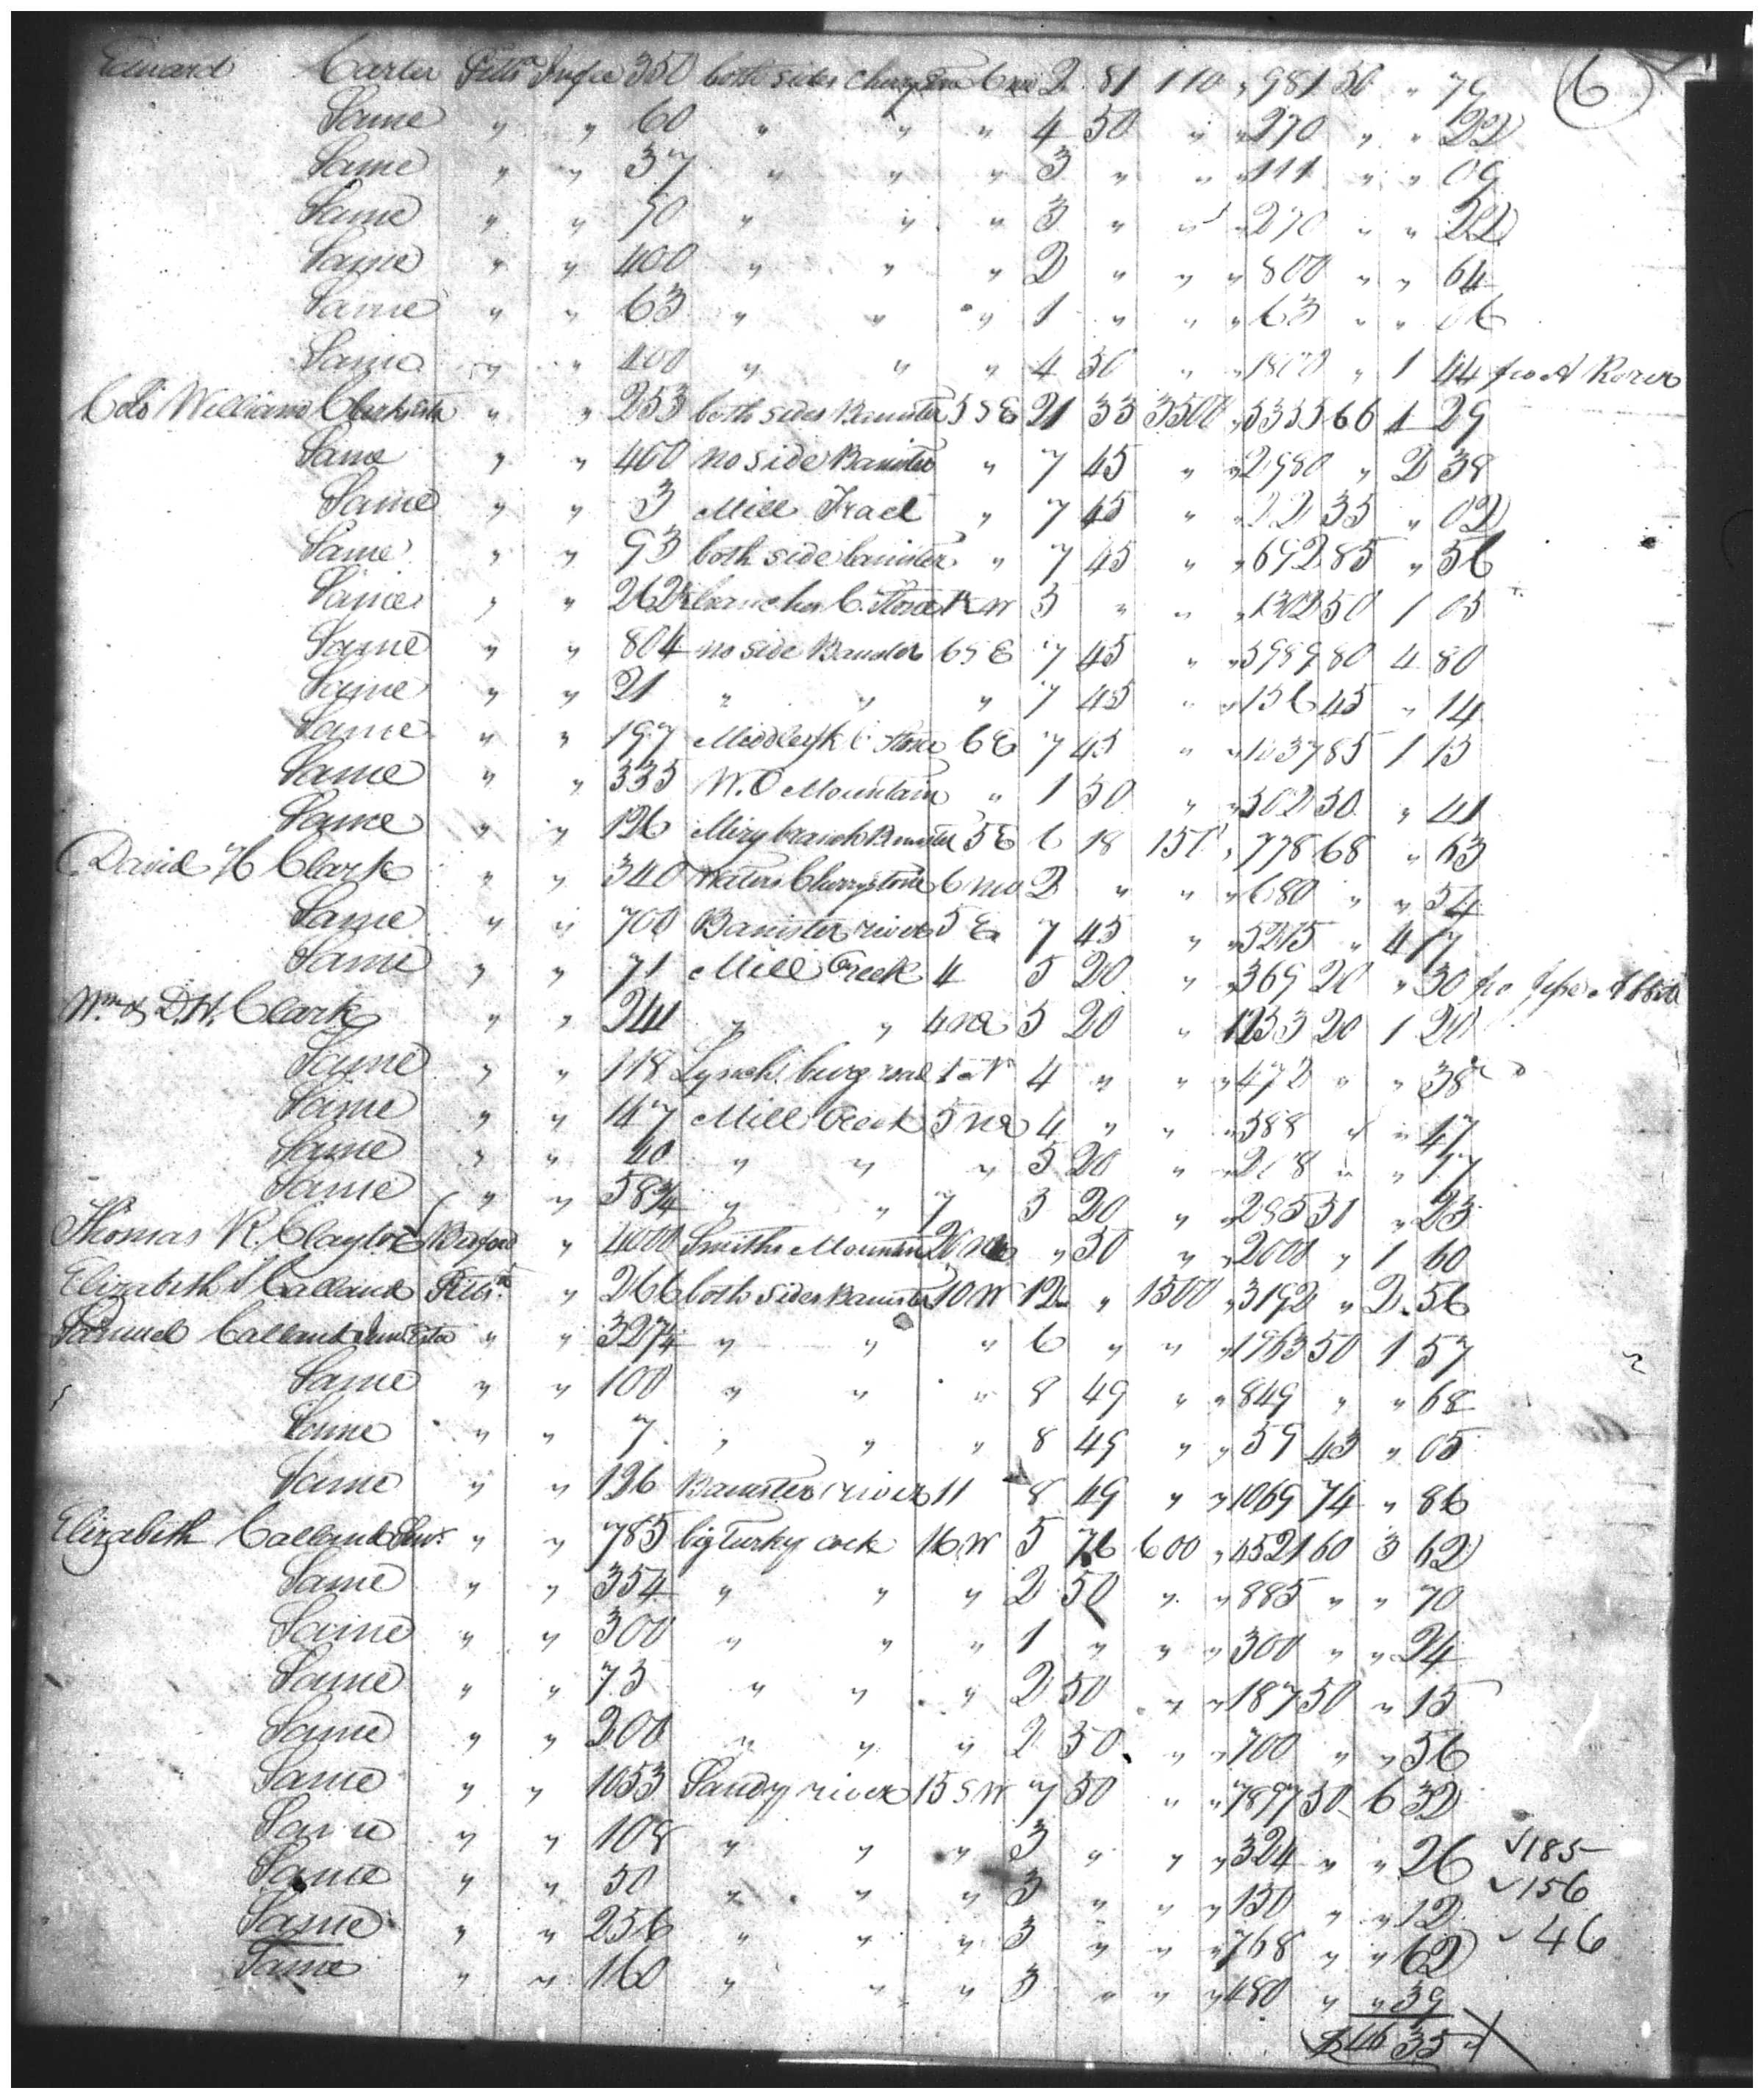 6
Edward Carter Pitts Infee 350 both sides cherrystone 6 nw 2 81 110 " 981 50 " 79
Same " " 60 " " " 4 50 " " 270 " " 22
Same " " 37 " " " 3 " " " 111 " " 09
Same " " 90 " " " 3 " " " 270 " " 22
Same " " 400 " " " 2 " " " 800 " " 64
Same " " 63 " " " 1 " " " 63 " "
Same " " 400 " " " 4 50 " " 1800 " 1 44 fro A Rorer
Colo William Clark " " 253 both sides Banister 5 S E 21 33 3500 " 5355 66 4 29
Same " " 400 no side Banister " 7 45 " " 2980 " 2 38
Same " " 3 Mill Tract " 7 45 " " 22 35 " 02
Same " " 93 both side banister " 7 45 " " 692 85 " 56
Same " " 262½ branches C. Stone N W 5 " " " 1312 50 1 05
Same " " 804 no side Banister 6 S E 7 45 " " 5989 80 4 80
Same " " 21 " " " 7 45 " " 156 45 " 14
Same " " 197 C Stone 6 E 7 45 " " 85 1 15
Same " " 335 W. O Mountain " 1 50 " " 502 50 " 41
Same " " 126 Miry branch Banister 5 E 6 18 150 " 778 68 " 63
David H Clark " " 340 waters Cherrystone 6 nw 2 " " " 680 " " 54
Same " " 700 Banister river 5 E 7 45 " " 5215 " 4 17
Same " " 71 Mill Creek 4 5 20 " " 369 20 " 30
Wm & D. H. Clark " " 241 " " 4 ne 5 20 " 1253 20 1 20
Same " " 118 Lynchburg road 1 N 4 " " " 472 " " 38
Same " " 147 Mill Creek 5 ne 4 " " " 588 " " 47
Same " " 40 " " " 5 20 " " 208 " " 17
Same " " 58¾ " " 7 5 20 " " 295 31 " 23
Thomas R. Claytor Bedford " 4000 Smiths Mountain 20 nw " 50 " " 2000 " 1 60
Elizabeth T Calland Pitts. " 266 both sides Banister 10 W 12 " 1500 " 3192 " 2 56
Samuel Calland Junr Esta " " 327¼ " " " 6 " " " 1963 50 1 57
Same " " 100 " " " 8 49 " " 849 " " 68
Same " " 7 " " " 8 49 " " 59 43 " 05
Same " " 126 Banister river 11 8 49 " " 1069 74 " 86
Elizabeth Calland Senr. " " 785 big turkey cock 16 W 5 76 600 " 4521 60 3 62
Same " " 354 " " " 2 50 " " 885 " " 70
Same " " 300 " " " 1 " " " 300 " " 24
Same " " 75 " " " 2 50 " " 187 50 " 15
Same " " 200 " " " 50 " " 700 " " 56
Same " " 1053 Sandy river 15 S W 7 50 " " 7897 50 6 32
Same " " 108 " " " 3 " " " 324 " " 26 ✓185
Same " " 50 " " " 3 " " " 150 " " 12 ✓156
Same " " 256 " " " 3 " " " 768 " " 62 ✓46
Same " " 160 " " " 3 " " " 480 " " 39
$46 35